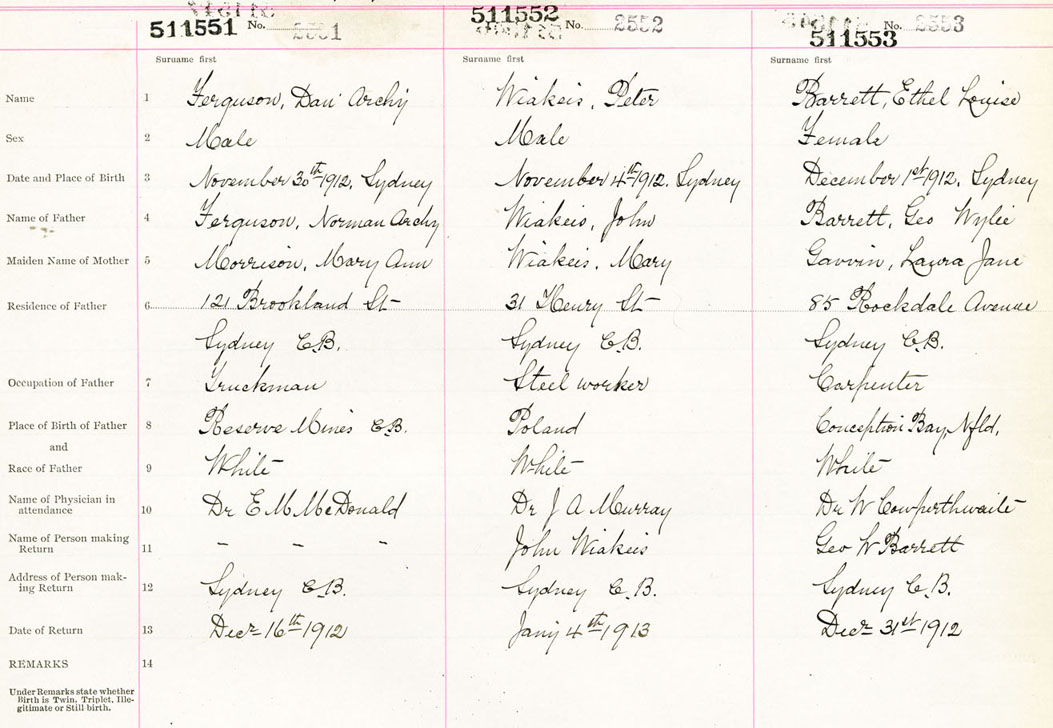 511551 No. 2551 511552 No. 2552 511553 No. 2553
Surname first Surname first Surname first
Name 1 Ferguson, Dan Archy Wiakeis, Peter Barrett, Ethel Louise
Sex 2 Male Male Female
Date and Place of Birth 3 November 30th 1912, Sydney November 4th 1912. Sydney December 1st 1912, Sydney
Name of Father 4 Ferguson, Norman Archy Wiakeis, John Barrett, Geo Wylie
Maiden Name of Mother 5 Morrison, Mary Ann Wiakeis, Mary Gavvin, Laura Jane
Residence of Father 6 121 Brookland St 31 Henry St 85 Rockdale Avenue
Sydney C.B. Sydney C.B. Sydney C.B.
Occupation of Father 7 Truckman Steel worker Carpenter
Place of Birth of Father 8 Reserve Mines C.B. Poland Conception Bay, Nfld,
and
Race of Father 9 White White White
Name of Physician in
attendance 10 Dr E M McDonald Dr J A Murray Dr W Cowperthwaite
Name of Person making
Return 11 - - - John Wiakeis Geo W Barrett
Address of Person mak-
ing Return 12 Sydney C.B. Sydney C.B. Sydney C.B.
Date of Return 13 Decr 16th 1912 Jany 4th 1913 Decr 31st 1912
REMARKS 14
Under Remarks state whether
Birth is Twin, Triplet, Ille-
gitimate or Still birth.